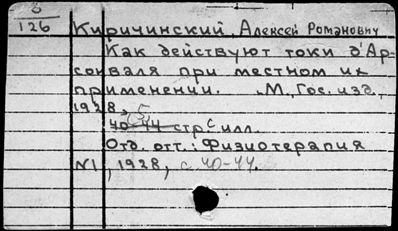 8
126
Киричинский, Алексей Романович
Как действуют токи д'Ар-
сонваля при местном их
применении. М., Гос. изд.,
1928,
5
40-44 стр с илл.
Отд. отт.: Физиотерапия
№1, 1928, с 40-44.